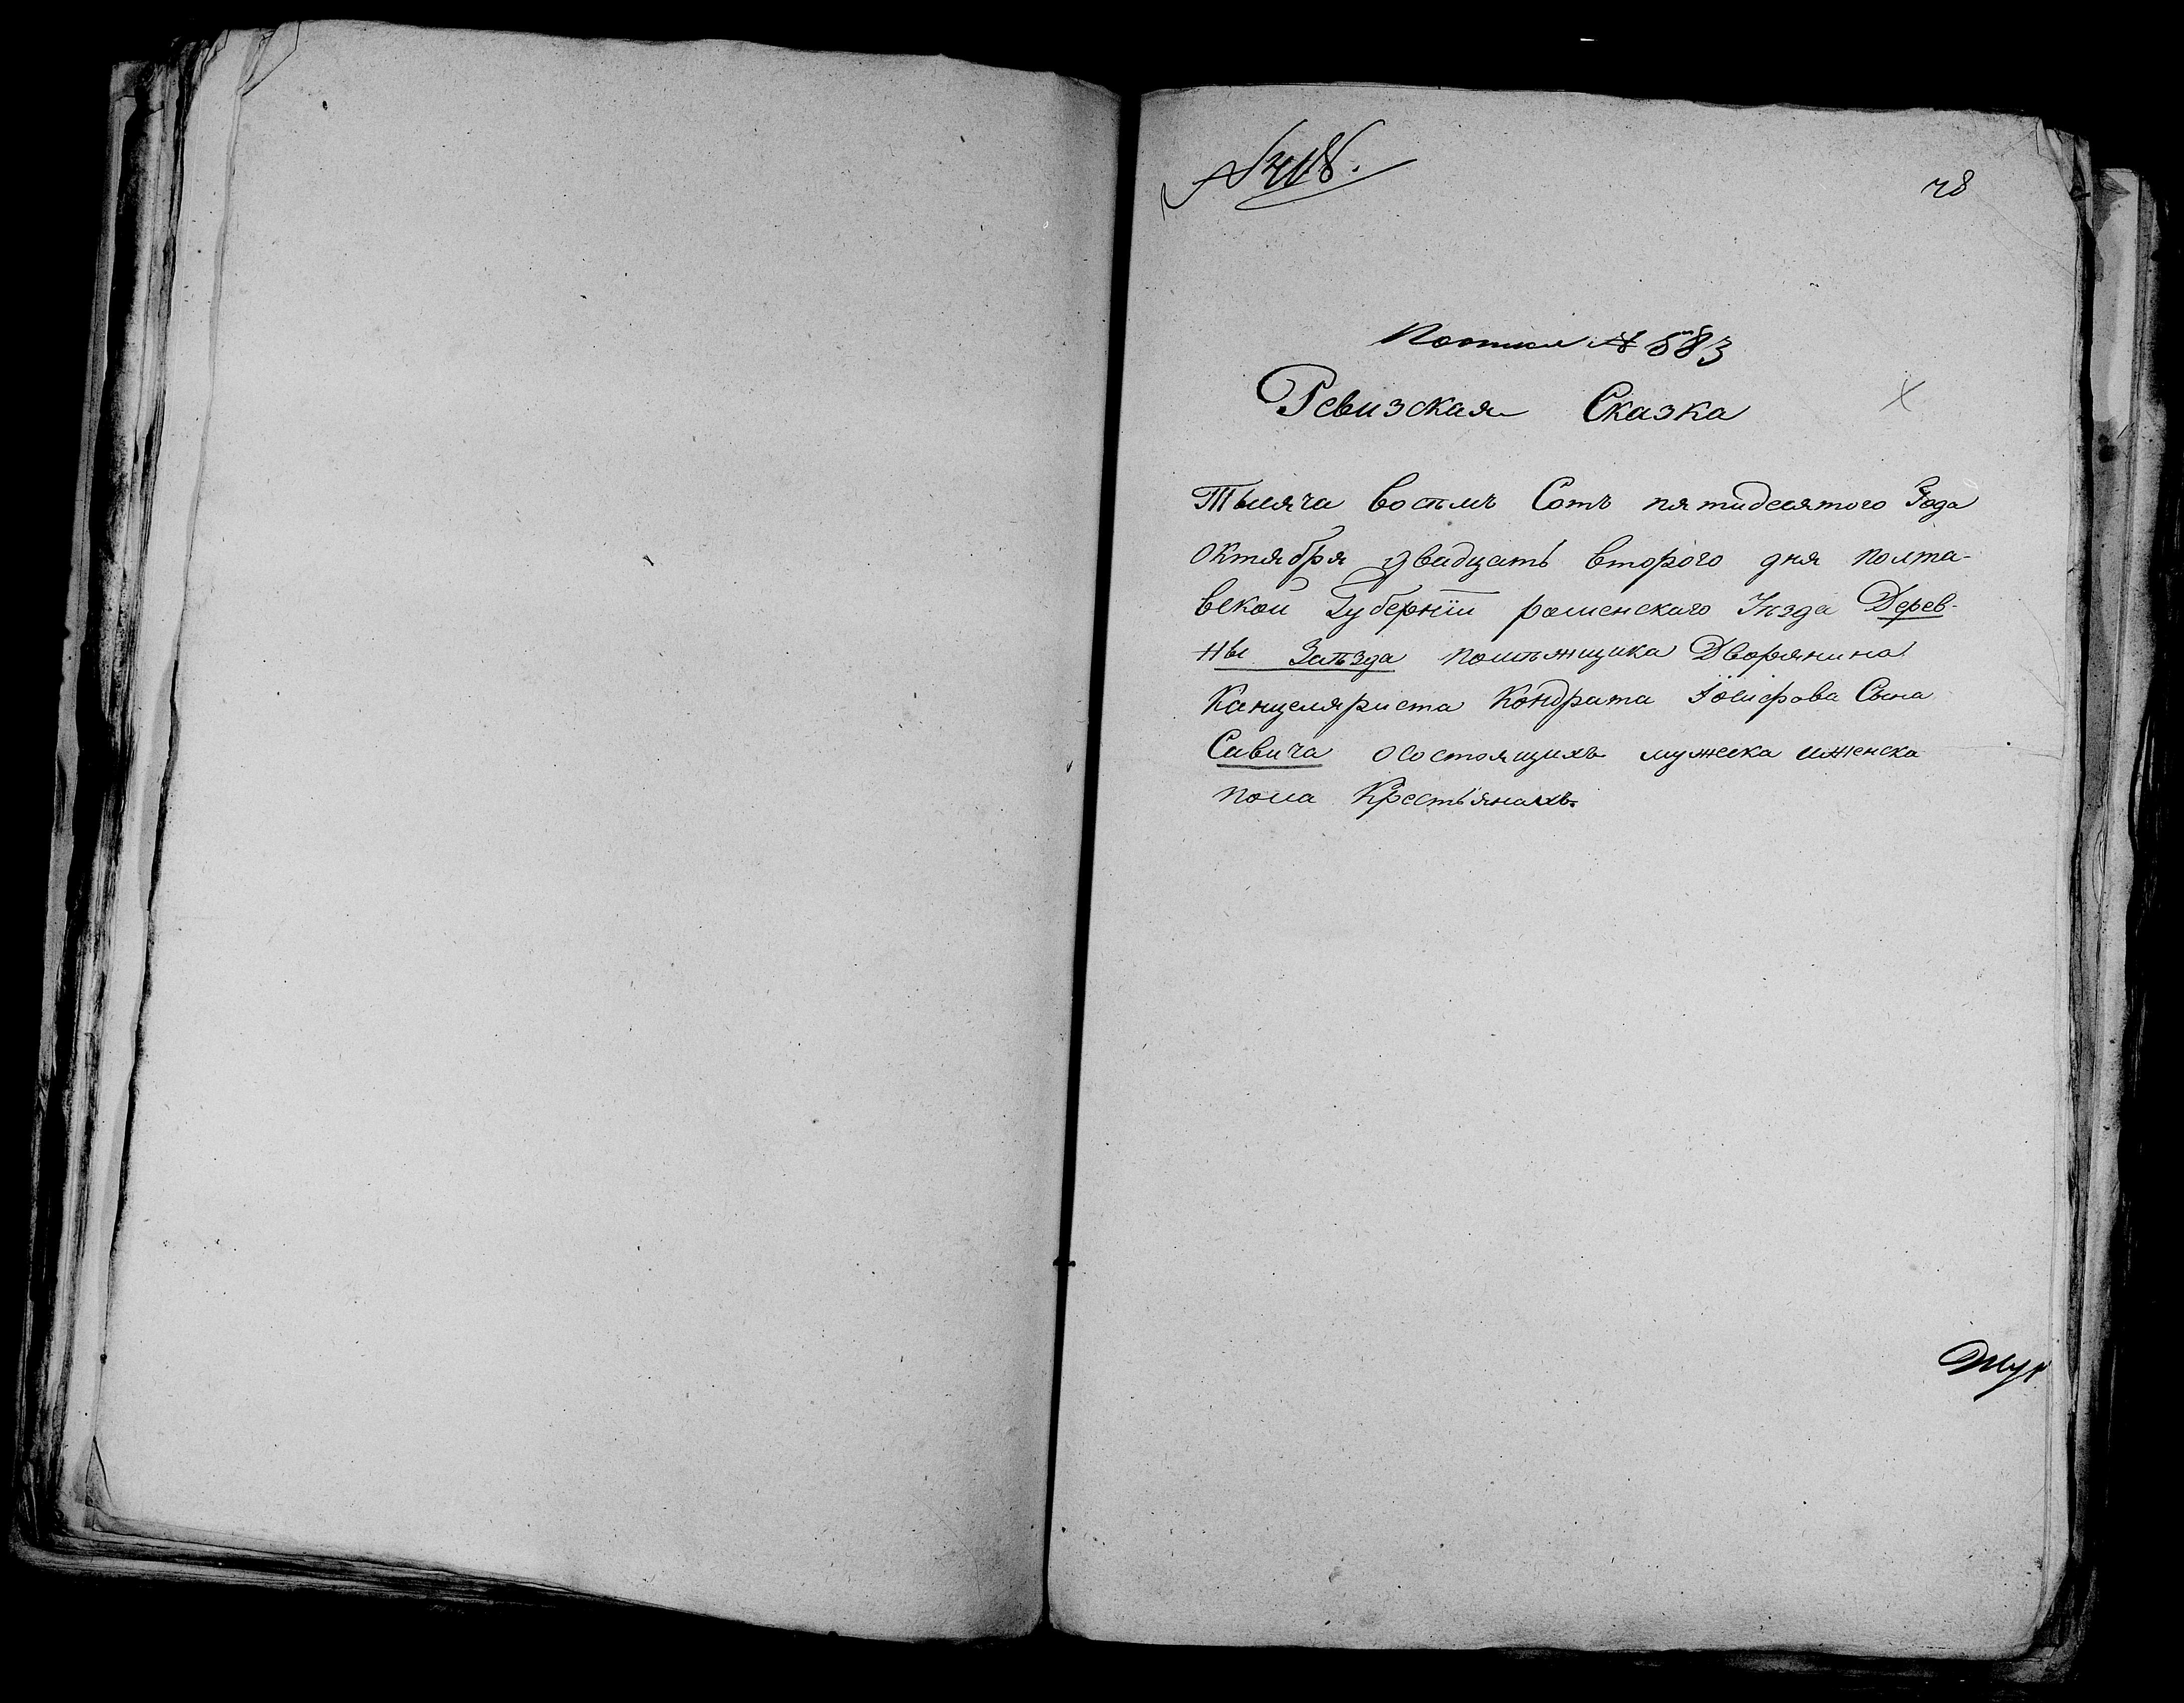 № 418.
78
№ 583
Ревизская Сказка
Тысяча восемь Сотъ пятидесятого Года
Октября двадцать второго дня полта-
вской Губерніи роменскаго Уѣзда Дерев-
ны Заѣзда помѣщика Дворянина
Канцеляриста Кондрата Іосифова Сына
Савича осостоящихъ мужеска иженска
пола Крестьянахъ.